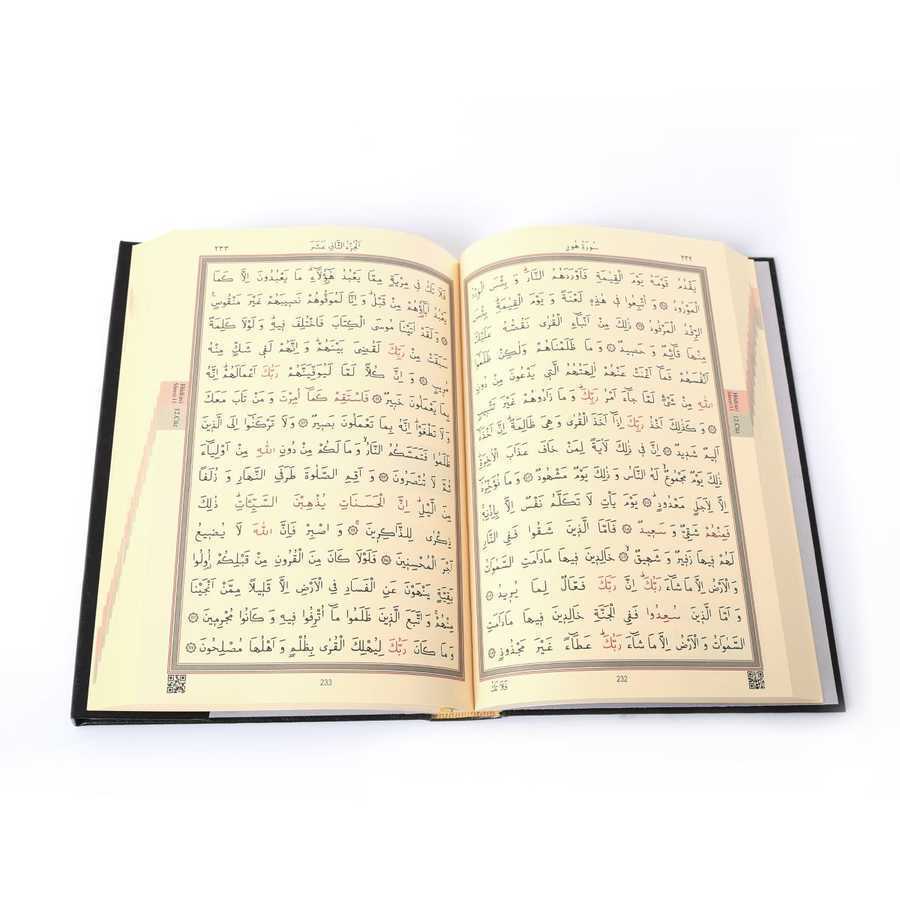 سُورَةُ هُودٍ
٢٣٢
يَقْدُمُ قَوْمَهُ يَوْمَ الْقِيٰمَةِ فَاَوْرَدَهُمُ النَّارَ وَ بِئْسَ الْوِرْدُ
الْمَوْرُودُ وَ اُتْبِعُوا فِي هٰذِهِ لَعْنَةً وَ يَوْمَ الْقِيٰمَةِ بِئْسَ
الرِّفْدُ الْمَرْفُودُ ذٰلِكَ مِنْ اَنْبَٓاءِ الْقُرٰى نَقُصُّهُ عَلَيْكَ
مِنْهَا قَٓائِمٌ وَ حَصِيدٌ وَ مَا ظَلَمْنَاهُمْ وَلٰكِنْ ظَلَمُٓوا
اَنْفُسَهُمْ فَمَٓا اَغْنَتْ عَنْهُمْ اٰلِهَتُهُمُ الَّتِي يَدْعُونَ مِنْ دُونِ
اللّٰهِ مِنْ شَيْءٍ لَمَّا جَٓاءَ اَمْرُ رَبِّكَ وَ مَا زَادُوهُمْ غَيْرَ تَتْبِيبٍ
وَ كَذٰلِكَ اَخْذُ رَبِّكَ اِذَٓا اَخَذَ الْقُرٰى وَ هِيَ ظَالِمَةٌ اِنَّ اَخْذَهُٓ
اَلِيمٌ شَدِيدٌ اِنَّ فِي ذٰلِكَ لَاٰيَةً لِمَنْ خَافَ عَذَابَ الْاٰخِرَةِ
ذٰلِكَ يَوْمٌ مَجْمُوعٌ لَهُ النَّاسُ وَ ذٰلِكَ يَوْمٌ مَشْهُودٌ وَ مَا نُؤَخِّرُهُٓ
اِلَّا لِاَجَلٍ مَعْدُودٍ يَوْمَ يَأْتِ لَا تَكَلَّمُ نَفْسٌ اِلَّا بِاِذْنِهِ
فَمِنْهُمْ شَقِيٌّ وَ سَعِيدٌ فَاَمَّا الَّذِينَ شَقُوا فَفِي النَّارِ
لَهُمْ فِيهَا زَفِيرٌ وَ شَهِيقٌ خَالِدِينَ فِيهَا مَادَامَتِ السَّمٰوَاتُ
وَ الْاَرْضُ اِلَّا مَا شَٓاءَ رَبُّكَ اِنَّ رَبَّكَ فَعَّالٌ لِمَا يُرِيدُ
وَ اَمَّا الَّذِينَ سُعِدُوا فَفِي الْجَنَّةِ خَالِدِينَ فِيهَا مَادَامَتِ
السَّمٰوَاتُ وَ الْاَرْضُ اِلَّا مَا شَٓاءَ رَبُّكَ عَطَٓاءً غَيْرَ مَجْذُوذٍ
232
فَلَا تَكُ
اَلْجُزْءُ الثَّانِي عَشَرَ
٢٣٣
فَلَا تَكُ فِي مِرْيَةٍ مِمَّا يَعْبُدُ هٰٓؤُ۬لَٓاءِ مَا يَعْبُدُونَ اِلَّا كَمَا
يَعْبُدُ اٰبَٓاؤُ۬هُمْ مِنْ قَبْلُ وَ اِنَّا لَمُوَفُّوهُمْ نَصِيبَهُمْ غَيْرَ مَنْقُوصٍ
وَ لَقَدْ اٰتَيْنَا مُوسَى الْكِتَابَ فَاخْتُلِفَ فِيهِ وَ لَوْلَا كَلِمَةٌ
سَبَقَتْ مِنْ رَبِّكَ لَقُضِيَ بَيْنَهُمْ وَ اِنَّهُمْ لَفِي شَكٍّ مِنْهُ
مُرِيبٍ وَ اِنَّ كُلًّا لَمَّا لَيُوَفِّيَنَّهُمْ رَبُّكَ اَعْمَالَهُمْ اِنَّهُ
بِمَا يَعْمَلُونَ خَبِيرٌ فَاسْتَقِمْ كَمَٓا اُمِرْتَ وَ مَنْ تَابَ مَعَكَ
وَ لَا تَطْغَوْا اِنَّهُ بِمَا تَعْمَلُونَ بَصِيرٌ وَ لَا تَرْكَنُٓوا اِلَى الَّذِينَ
ظَلَمُوا فَتَمَسَّكُمُ النَّارُ وَ مَا لَكُمْ مِنْ دُونِ اللّٰهِ مِنْ اَوْلِيَٓاءَ
ثُمَّ لَا تُنْصَرُونَ وَ اَقِمِ الصَّلٰوةَ طَرَفَيِ النَّهَارِ وَ زُلَفًا
مِنَ الَّيْلِ اِنَّ الْحَسَنَاتِ يُذْهِبْنَ السَّيِّـَٔاتِ ذٰلِكَ
ذِكْرٰى لِلذَّاكِرِينَ وَ اصْبِرْ فَاِنَّ اللّٰهَ لَا يُضِيعُ
اَجْرَ الْمُحْسِنِينَ فَلَوْلَا كَانَ مِنَ الْقُرُونِ مِنْ قَبْلِكُمْ اُو۬لُوا
بَقِيَّةٍ يَنْهَوْنَ عَنِ الْفَسَادِ فِي الْاَرْضِ اِلَّا قَلِيلًا مِمَّنْ اَنْجَيْنَا
مِنْهُمْ وَ اتَّبَعَ الَّذِينَ ظَلَمُوا مَٓا اُتْرِفُوا فِيهِ وَ كَانُوا مُجْرِمِينَ
وَ مَا كَانَ رَبُّكَ لِيُهْلِكَ الْقُرٰى بِظُلْمٍ وَ اَهْلُهَا مُصْلِحُونَ
233